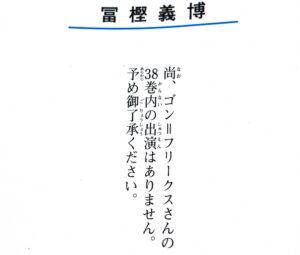 冨樫義博
尚、ゴン＝フリークスさんの
38巻内の出演はありません。
予め御了承ください。